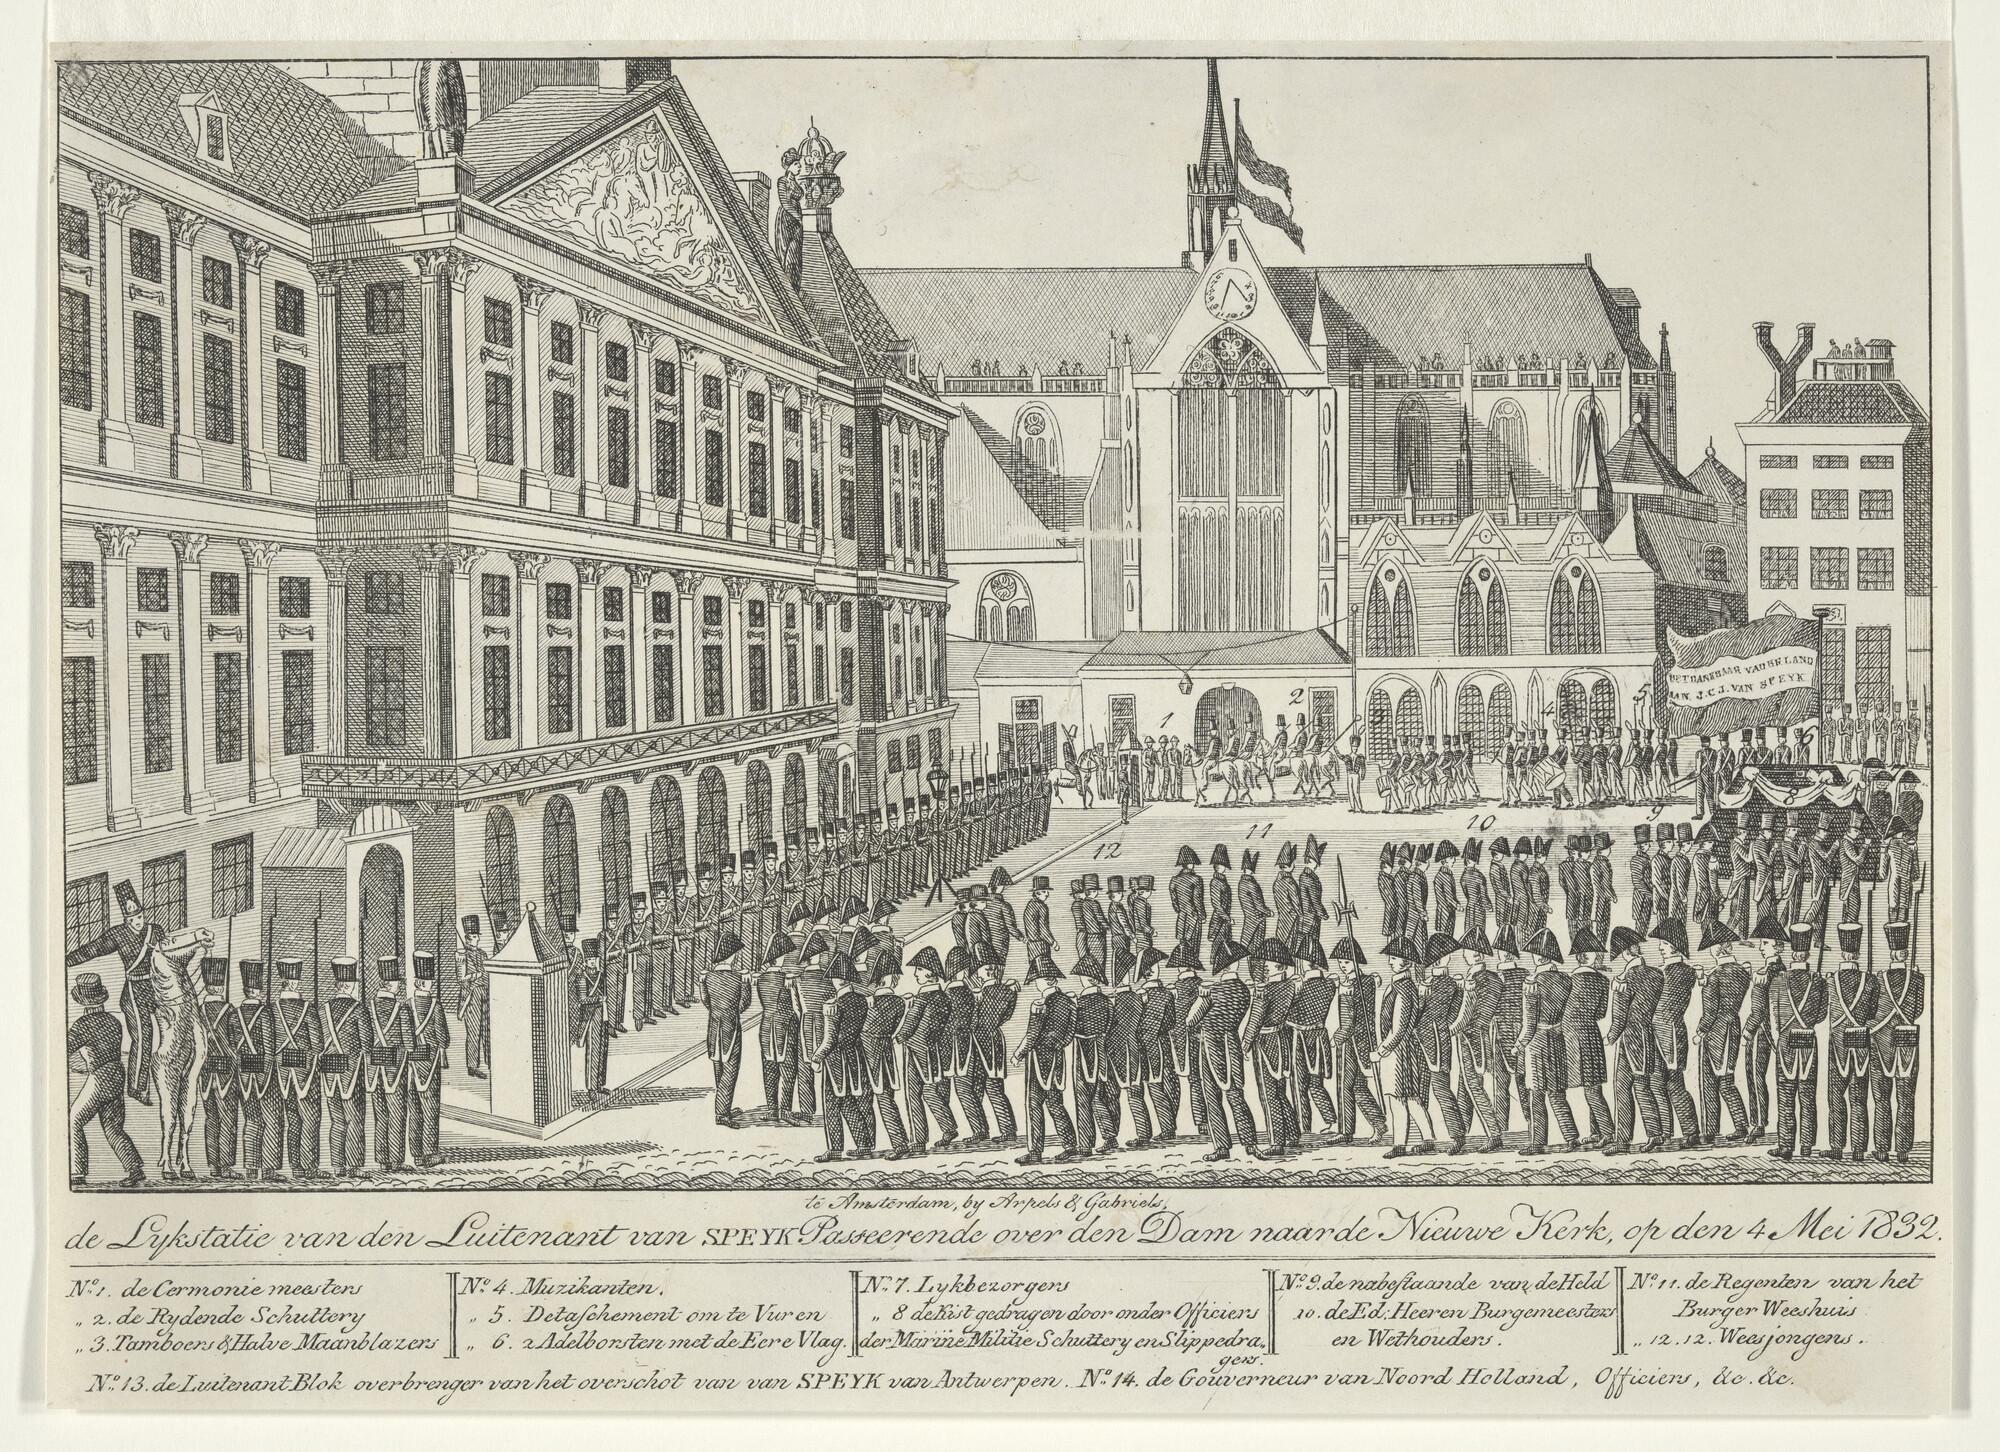 HET DANKBAAR VADERLAND
AAN J.C.J. VAN SPEYK
1
2
3
4
5
6
8
9
10
11
12
te Amsterdam, by Arpels & Gabriels.
de Lykstatie van den Luitenant van SPEYK Passeerende over den Dam naar de Nieuwe Kerk, op den 4 Mei 1832.
No. 1. de Cermonie meesters
„ 2. de Rydende Schuttery
„ 3. Tamboers & Halve Maanblazers
No. 4. Muzikanten.
„ 5. Detaschement om te Vuren
„ 6. 2 Adelborsten met de Eere Vlag.
No. 7. Lykbezorgers
„ 8 de Kist gedragen door onder Officiers
der Marine Militie Schuttery en Slippedra„
gers.
No. 9. de nabestaande van de Held
10. de Ed: Heeren Burgemeesters
en Wethouders.
No. 11. de Regenten van het
Burger Weeshuis
„ 12.12. Weesjongens.
No. 13. de Luitenant Blok overbrenger van het overschot van van SPEYK van Antwerpen. No. 14. de Gouverneur van Noord Holland, Officiers, &c. &c.